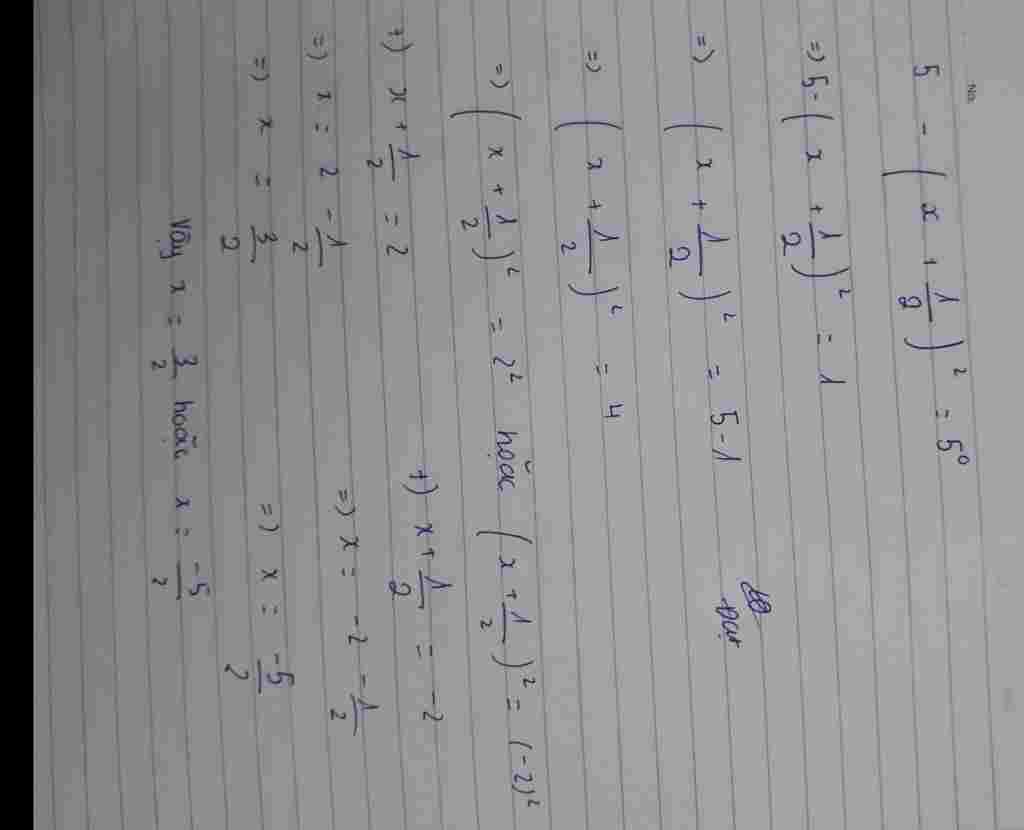 No.
5 - (x + 1/2)² = 5⁰
=) 5 - (x + 1/2)² = 1
=) (x + 1/2)² = 5 - 1
=) (x + 1/2)² = 4
=) (x + 1/2)² = 2² hoặc (x + 1/2)² = (-2)²
+) x + 1/2 = 2 +) x + 1/2 = -2
=) x = 2 - 1/2 =) x = -2 - 1/2
=) x = 3/2 =) x = -5/2
Vậy x = 3/2 hoặc x = -5/2